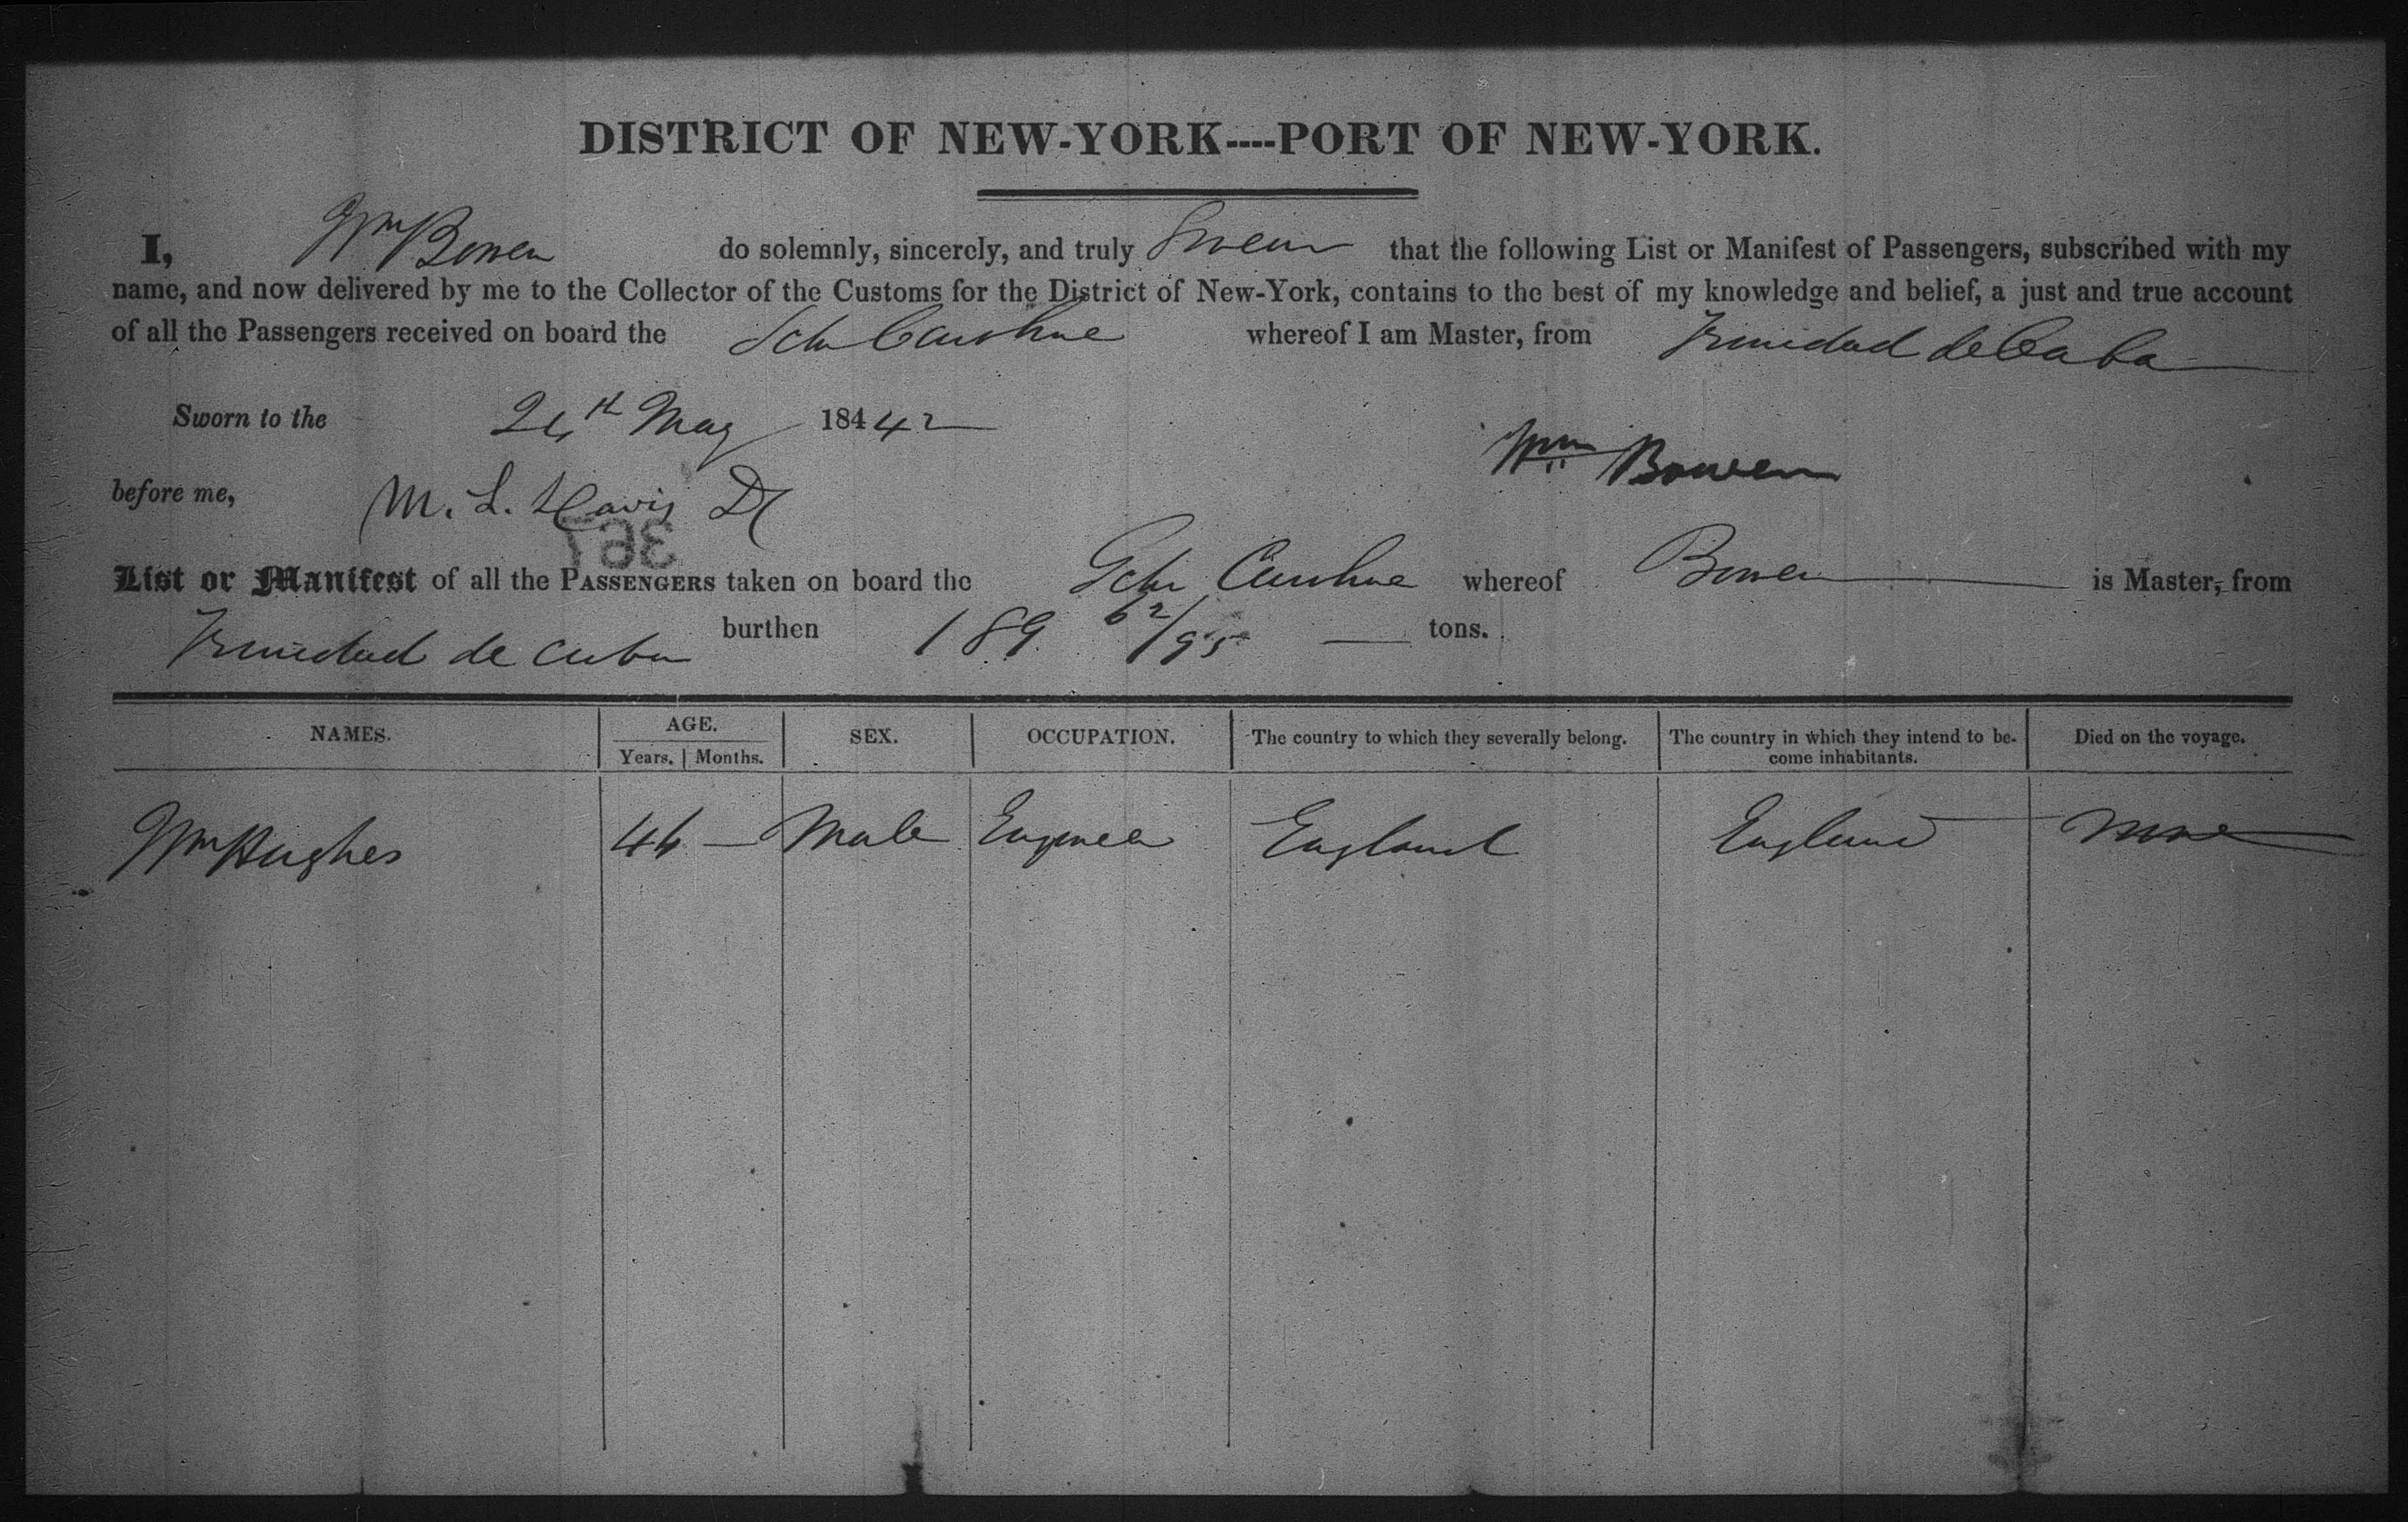 DISTRICT OF NEW-YORK----PORT OF NEW-YORK.
I, Wm Bowen do solemnly, sincerely, and truly Swear that the following List or Manifest of Passengers, subscribed with my
name, and now delivered by me to the Collector of the Customs for the District of New-York, contains to the best of my knowledge and belief, a just and true account
of all the Passengers received on board the Schr Caroline whereof I am Master, from Trinidad de Cuba
Sworn to the 24th May 184 42
Wm Bowen
before me, M. L. Davis
367
List or Manifest of all the PASSENGERS taken on board the Schr Caroline whereof Bowen is Master, from
Trinidad de Cuba burthen 189 62/95 tons.
NAMES. AGE. SEX. OCCUPATION. The country to which they severally belong. The country in which they intend to be- Died on the voyage.
Years. Months. come inhabitants.
Wm Hughes 46 Male Engineer England England None